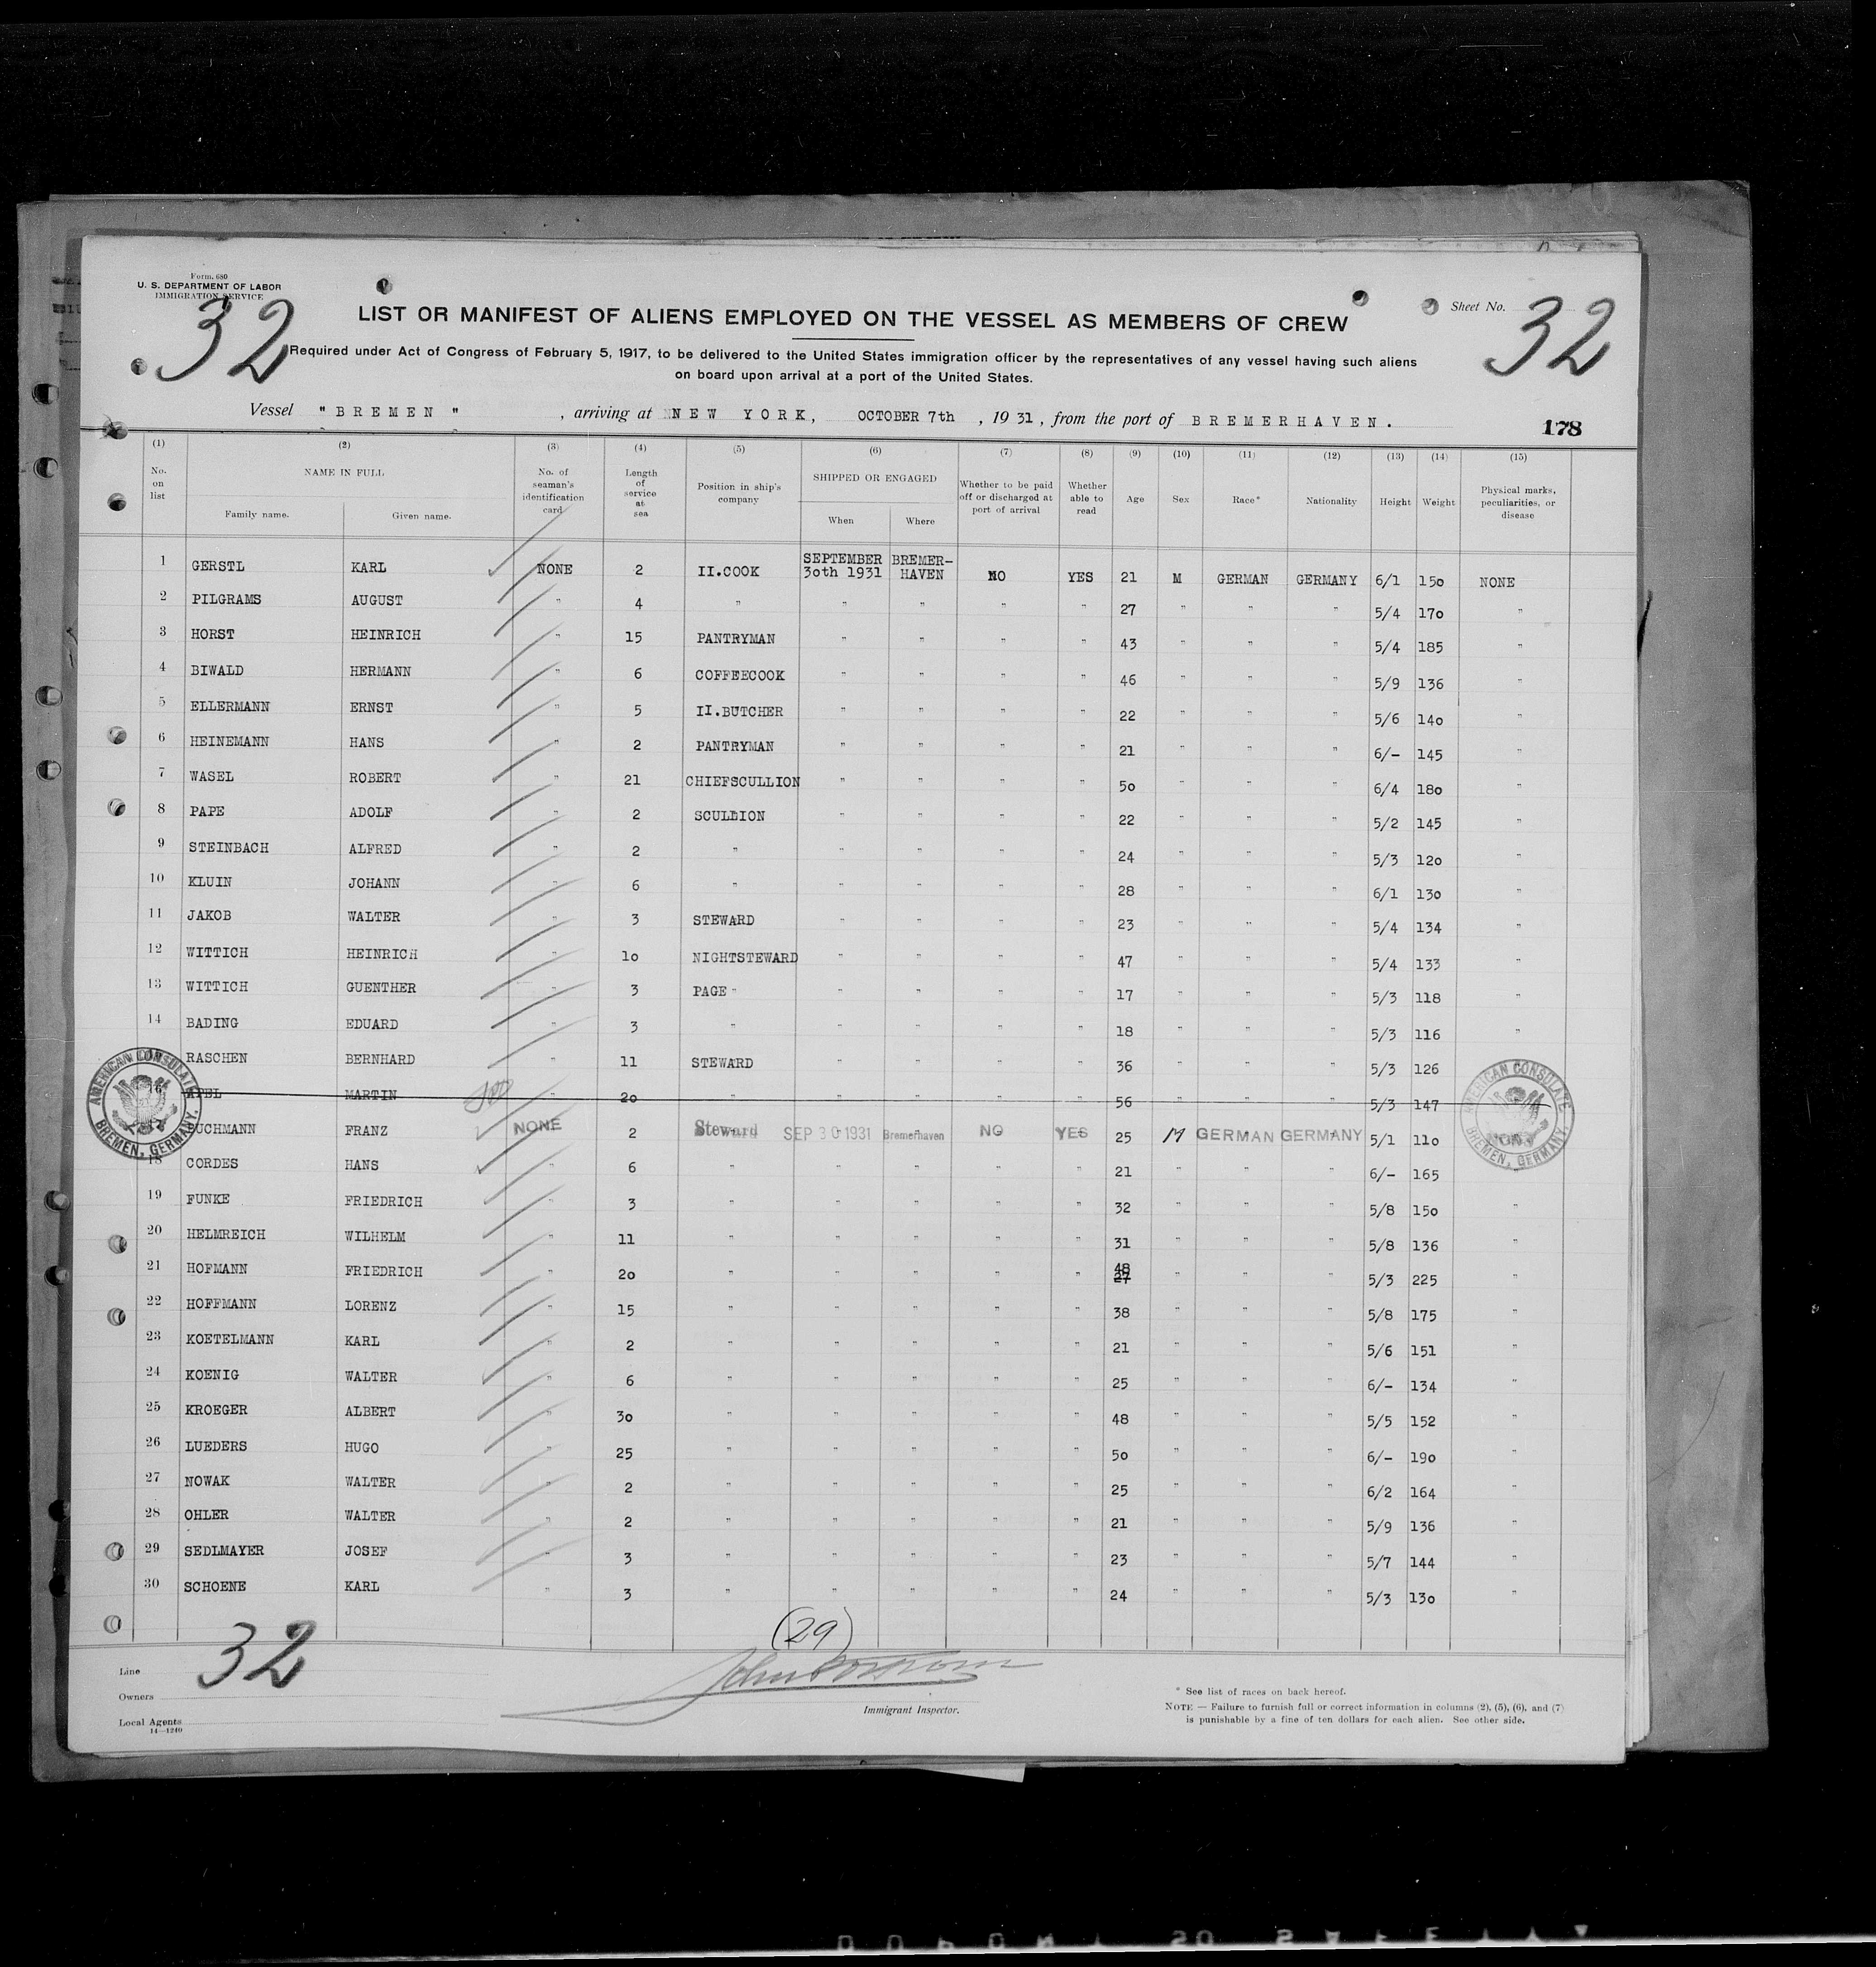 Form 680
U. S. DEPARTMENT OF LABOR
IMMIGRATION SERVICE
32
LIST OR MANIFEST OF ALIENS EMPLOYED ON THE VESSEL AS MEMBERS OF CREW
Sheet No. 32
Required under Act of Congress of February 5, 1917, to be delivered to the United States immigration officer by the representatives of any vessel having such aliens
on board upon arrival at a port of the United States.
Vessel "BREMEN", arriving at NEW YORK, OCTOBER 7th, 1931, from the port of BREMERHAVEN.
178
(1) (2) (3) (4) (5) (6) (7) (8) (9) (10) (11) (12) (13) (14) (15)
No. on list NAME IN FULL Family name. Given name. No. of seaman's identification card Length of service at sea Position in ship's company SHIPPED OR ENGAGED When Where Whether to be paid off or discharged at port of arrival Whether able to read Age Sex Race* Nationality Height Weight Physical marks, peculiarities, or disease
1 GERSTL KARL NONE 2 II.COOK SEPTEMBER 3oth 1931 BREMER-HAVEN NO YES 21 M GERMAN GERMANY 6/1 15o NONE
2 PILGRAMS AUGUST " 4 " " " " " 27 " " " 5/4 17o "
3 HORST HEINRICH " 15 PANTRYMAN " " " " 43 " " " 5/4 185 "
4 BIWALD HERMANN " 6 COFFEECOOK " " " " 46 " " " 5/9 136 "
5 ELLERMANN ERNST " 5 II.BUTCHER " " " " 22 " " " 5/6 14o "
6 HEINEMANN HANS " 2 PANTRYMAN " " " " 21 " " " 6/- 145 "
7 WASEL ROBERT " 21 CHIEFSCULLION " " " " 5o " " " 6/4 18o "
8 PAPE ADOLF " 2 SCULLION " " " " 22 " " " 5/2 145 "
9 STEINBACH ALFRED " 2 " " " " " 24 " " " 5/3 12o "
10 KLUIN JOHANN " 6 " " " " " 28 " " " 6/1 13o "
11 JAKOB WALTER " 3 STEWARD " " " " 23 " " " 5/4 134 "
12 WITTICH HEINRICH " 1o NIGHTSTEWARD " " " " 47 " " " 5/4 133 "
13 WITTICH GUENTHER " 3 PAGE " " " " 17 " " " 5/3 118 "
14 BADING EDUARD " 3 " " " " " 18 " " " 5/3 116 "
RASCHEN BERNHARD " 11 STEWARD " " " " 36 " " " 5/3 126 "
16 APEL MARTIN " 2o " " " " " 56 " " " 5/3 147
UCHMANN FRANZ NONE 2 Steward SEP 30 1931 Bremerhaven NO YES 25 M GERMAN GERMANY 5/1 11o NONE
18 CORDES HANS " 6 " " " " " 21 " " " 6/- 165
19 FUNKE FRIEDRICH " 3 " " " " " 32 " " " 5/8 15o "
20 HELMREICH WILHELM " 11 " " " " " 31 " " " 5/8 136 "
21 HOFMANN FRIEDRICH " 2o " " " " " 48 27 " " " 5/3 225 "
22 HOFFMANN LORENZ " 15 " " " " " 38 " " " 5/8 175 "
23 KOETELMANN KARL " 2 " " " " " 21 " " " 5/6 151 "
24 KOENIG WALTER " 6 " " " " " 25 " " " 6/- 134 "
25 KROEGER ALBERT " 3o " " " " " 48 " " " 5/5 152 "
26 LUEDERS HUGO " 25 " " " " " 5o " " " 6/- 19o "
27 NOWAK WALTER " 2 " " " " " 25 " " " 6/2 164 "
28 OHLER WALTER " 2 " " " " " 21 " " " 5/9 136 "
29 SEDLMAYER JOSEF " 3 " " " " " 23 " " " 5/7 144 "
30 SCHOENE KARL " 3 " " " " " 24 " " " 5/3 13o "
AMERICAN CONSULATE BREMEN, GERMANY.
AMERICAN CONSULATE BREMEN, GERMANY.
32
(29)
Line
Owners
Local Agents
14—1240
John
Immigrant Inspector.
* See list of races on back hereof.
NOTE — Failure to furnish full or correct information in columns (2), (5), (6), and (7)
is punishable by a fine of ten dollars for each alien. See other side.